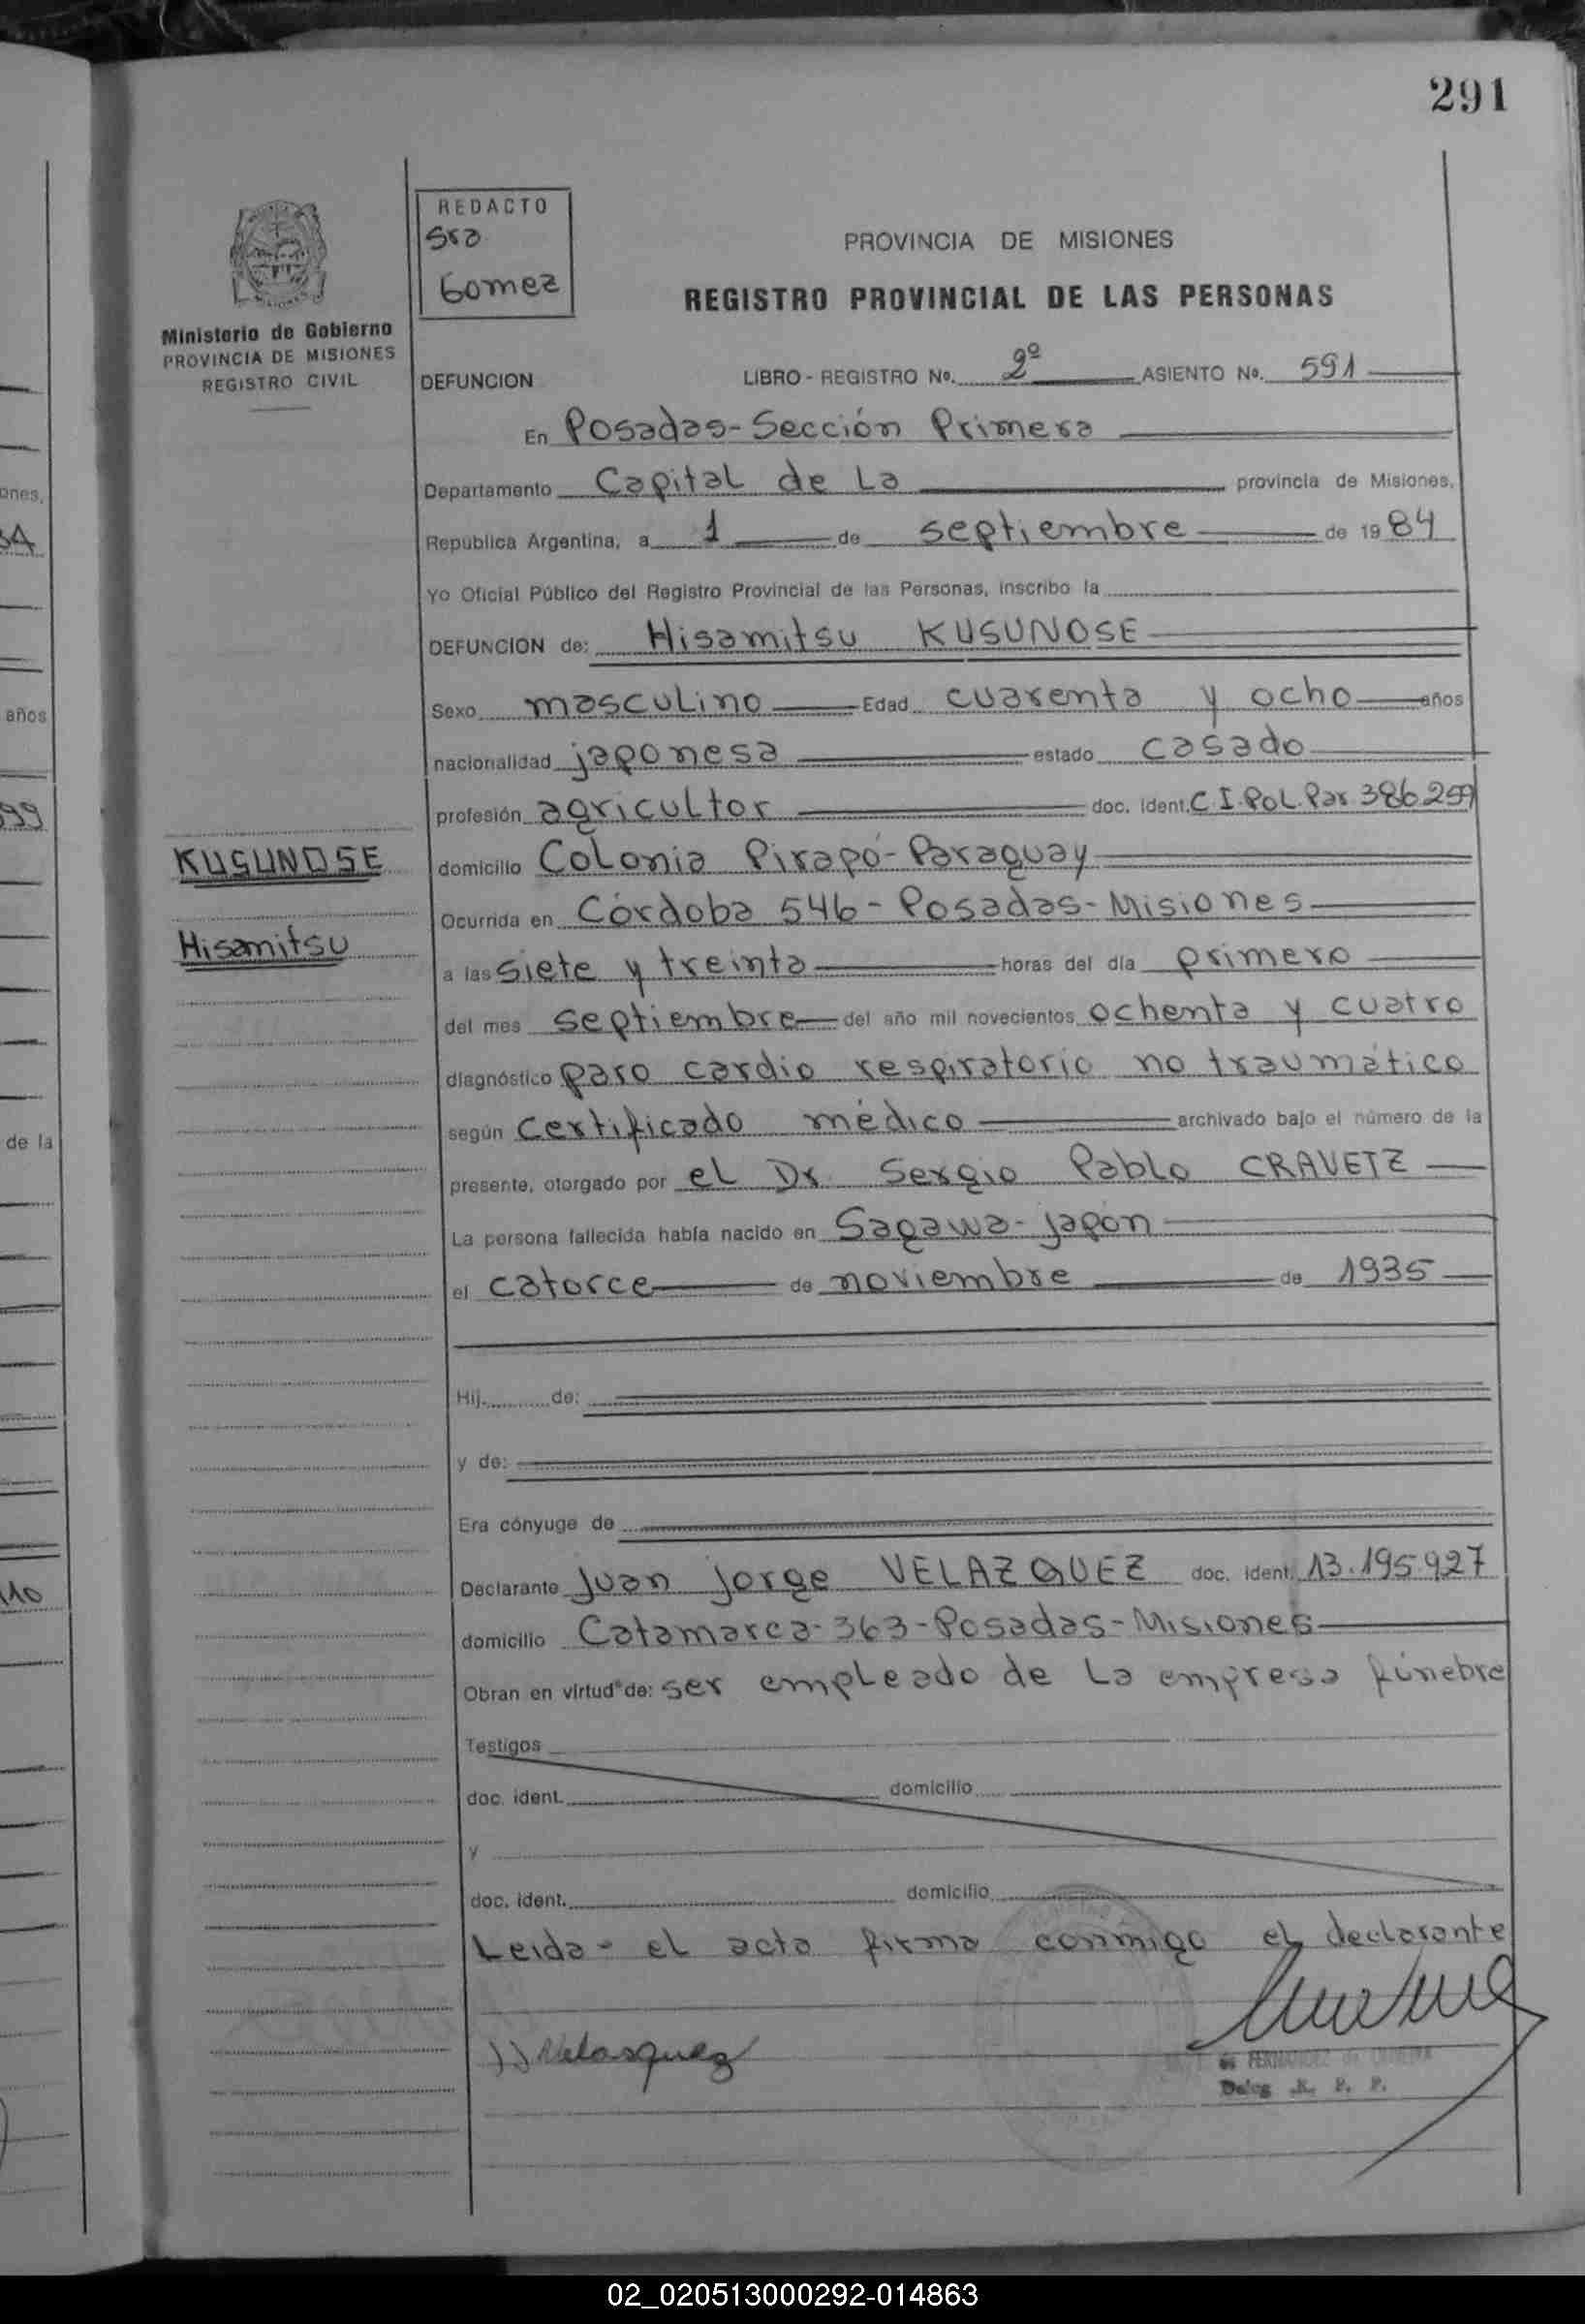 291
REDACTO
Sra
Gomez
Ministerio de Gobierno
PROVINCIA DE MISIONES
REGISTRO CIVIL
PROVINCIA DE MISIONES
REGISTRO PROVINCIAL DE LAS PERSONAS
DEFUNCION LIBRO - REGISTRO No. 2º ASIENTO No. 591
En Posadas - Sección Primera
Departamento Capital de La provincia de Misiones,
República Argentina, a 1 de septiembre de 1984
Yo Oficial Público del Registro Provincial de las Personas, inscribo la
DEFUNCION de: Hisamitsu KUSUNOSE
Sexo masculino Edad cuarenta y ocho años
nacionalidad japonesa estado casado
profesión agricultor doc. ident. C.I.Pol.Par 386.259
KUSUNOSE
Hisamitsu
domicilio Colonia Pirapó - Paraguay
Ocurrida en Córdoba 546 - Posadas - Misiones
a las siete y treinta horas del día primero
del mes septiembre del año mil novecientos ochenta y cuatro
diagnóstico paro cardio respiratorio no traumático
según certificado médico archivado bajo el número de la
presente, otorgado por el Dr. Sergio Pablo CRAVETZ
La persona fallecida había nacido en Sagawa - japón
el catorce de noviembre de 1935
Hij de:
y de:
Era cónyuge de
Declarante Juan jorge VELAZQUEZ doc. ident. 13.195.927
domicilio Catamarca - 363 - Posadas - Misiones
Obran en virtud de: ser empleado de la empresa fúnebre
Testigos
doc. ident. domicilio
y
doc. ident. domicilio
Leida - el acta firma conmigo el declarante
JJ Velasquez
FERNANDEZ de
Deleg. R. P. P.
ones,
34
años
99
de la
10
02_020513000292-014863